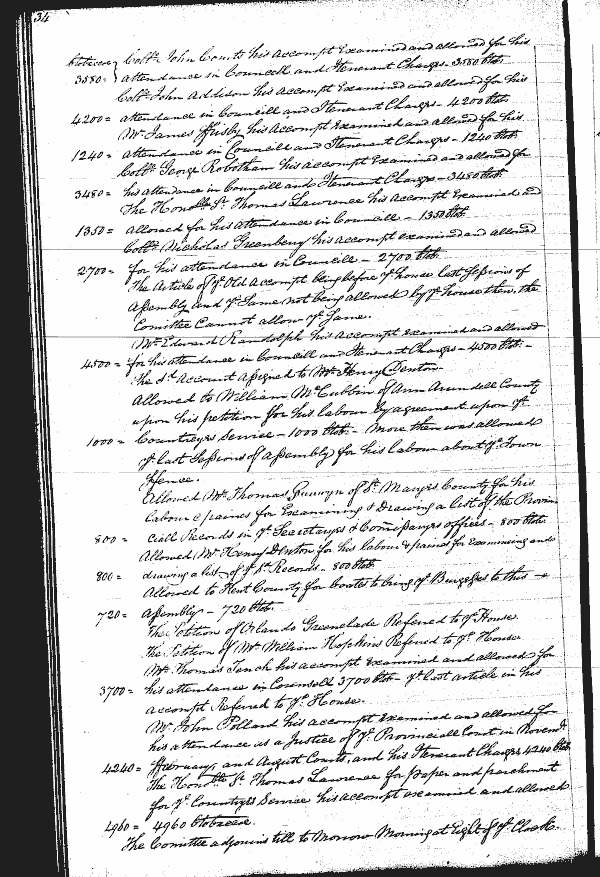 34
tobaccoe } Coll.º John Courts his accompt Examined and allowed for his
3580 = attendance in Councell and Itenerant Charges - 3580 ltob.
Coll.º John Addison his accompt Examined and allowed for his
4200 = attendance in Councill and Itenerant Charges - 4200 ltob.
Mr. James Frisby his Accompt Examined and allowed for his
1240 = attendance in Councill and Itenerant Charges - 1240 ltob.
Coll.º George Robotham his accompt Examined and allowed for
3480 = his attendance in Councill and Itenerant Charges - 3480 ltob.
The Honoble Sr. Thomas Lawrence his accompt Examined and
1350 = allowed for his attendance in Councill - 1350 ltob.
Coll.º Nicholas Greenbery his accompt examined and allowed
2700 = for his attendance in Councill - 2700 ltob.
The Article of ye Old Accompt being before ye house last Sessions of
Assembly and ye Same not being allowed by ye house then, the
Comittee Cannot allow ye Same.
Mr. Edward Randolph his accompt examined and allowed
4500 = for his attendance in Councill and Itenerant Charges - 4500 ltob. -
The sd. Account assigned to Mr. Henry Denton
Allowed to William McCubbin of Ann Arundell County
upon his petition for his labour by agreement upon ye
1000 = Countreyes Service - 1000 ltob. - More then was allowed
ye last Sessions of Assembly for his labour about ye Town
ffence.
Allowed Mr. Thomas Grunwyn of St. Maryes County for his
labour & paines for Examining & Drawing a list of the Provin
800 = ciall Records in ye Secretarys & Comissarys offices - 800 ltob.
Allowed Mr. Henry Denton for his labour & paines for Examining and
800 = drawing a list of ye sd. Records - 800 ltob.
Allowed to Kent County for boates to bring ye Burgesses to this
720 = Assembly - 720 ltob.
The Petition of Orlando Greenslade Referred to ye House.
The Petition of Mr. William Hopkins Referred to ye House
Mr. Thomas Tench his accompt examined and allowed for
3700 = his attendance in Councell 3700 ltob - ye last article in his
accompt Referred to ye House.
Mr. John Pollard his accompt examined and allowed for
his attendance as a Justice of ye Provinciall Court in Novembr
4240 = ffebruary, and August Courts, and his Itenerant Charges 4240 ltob
The Honoble Sr. Thomas Lawrence for paper and parchment
for ye Countryes Service his accompt examined and allowed
4960 = 4960 ltobaccoe.
The Comittee adjourns till to Morrow Morning at Eight of ye Clock.